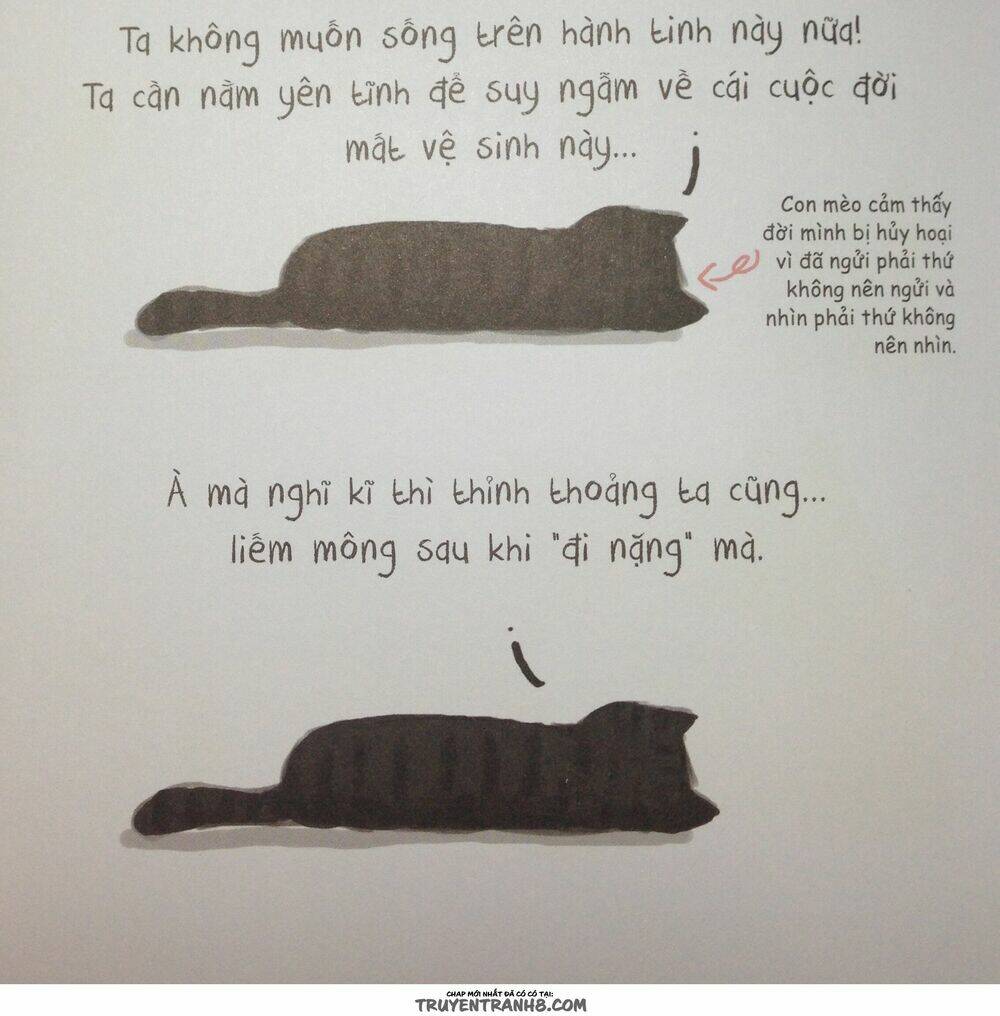 Ta không muốn sống trên hành tinh này nữa!
Ta cần nằm yên tĩnh để suy ngẫm về cái cuộc đời
mất vệ sinh này...
Con mèo cảm thấy
đời mình bị hủy hoại
vì đã ngửi phải thứ
không nên ngửi và
nhìn phải thứ không
nên nhìn.
À mà nghĩ kĩ thì thỉnh thoảng ta cũng...
liếm mông sau khi "đi nặng" mà.
CHAP MỚI NHẤT ĐÃ CÓ CÓ TẠI:
TRUYENTRANH8.COM